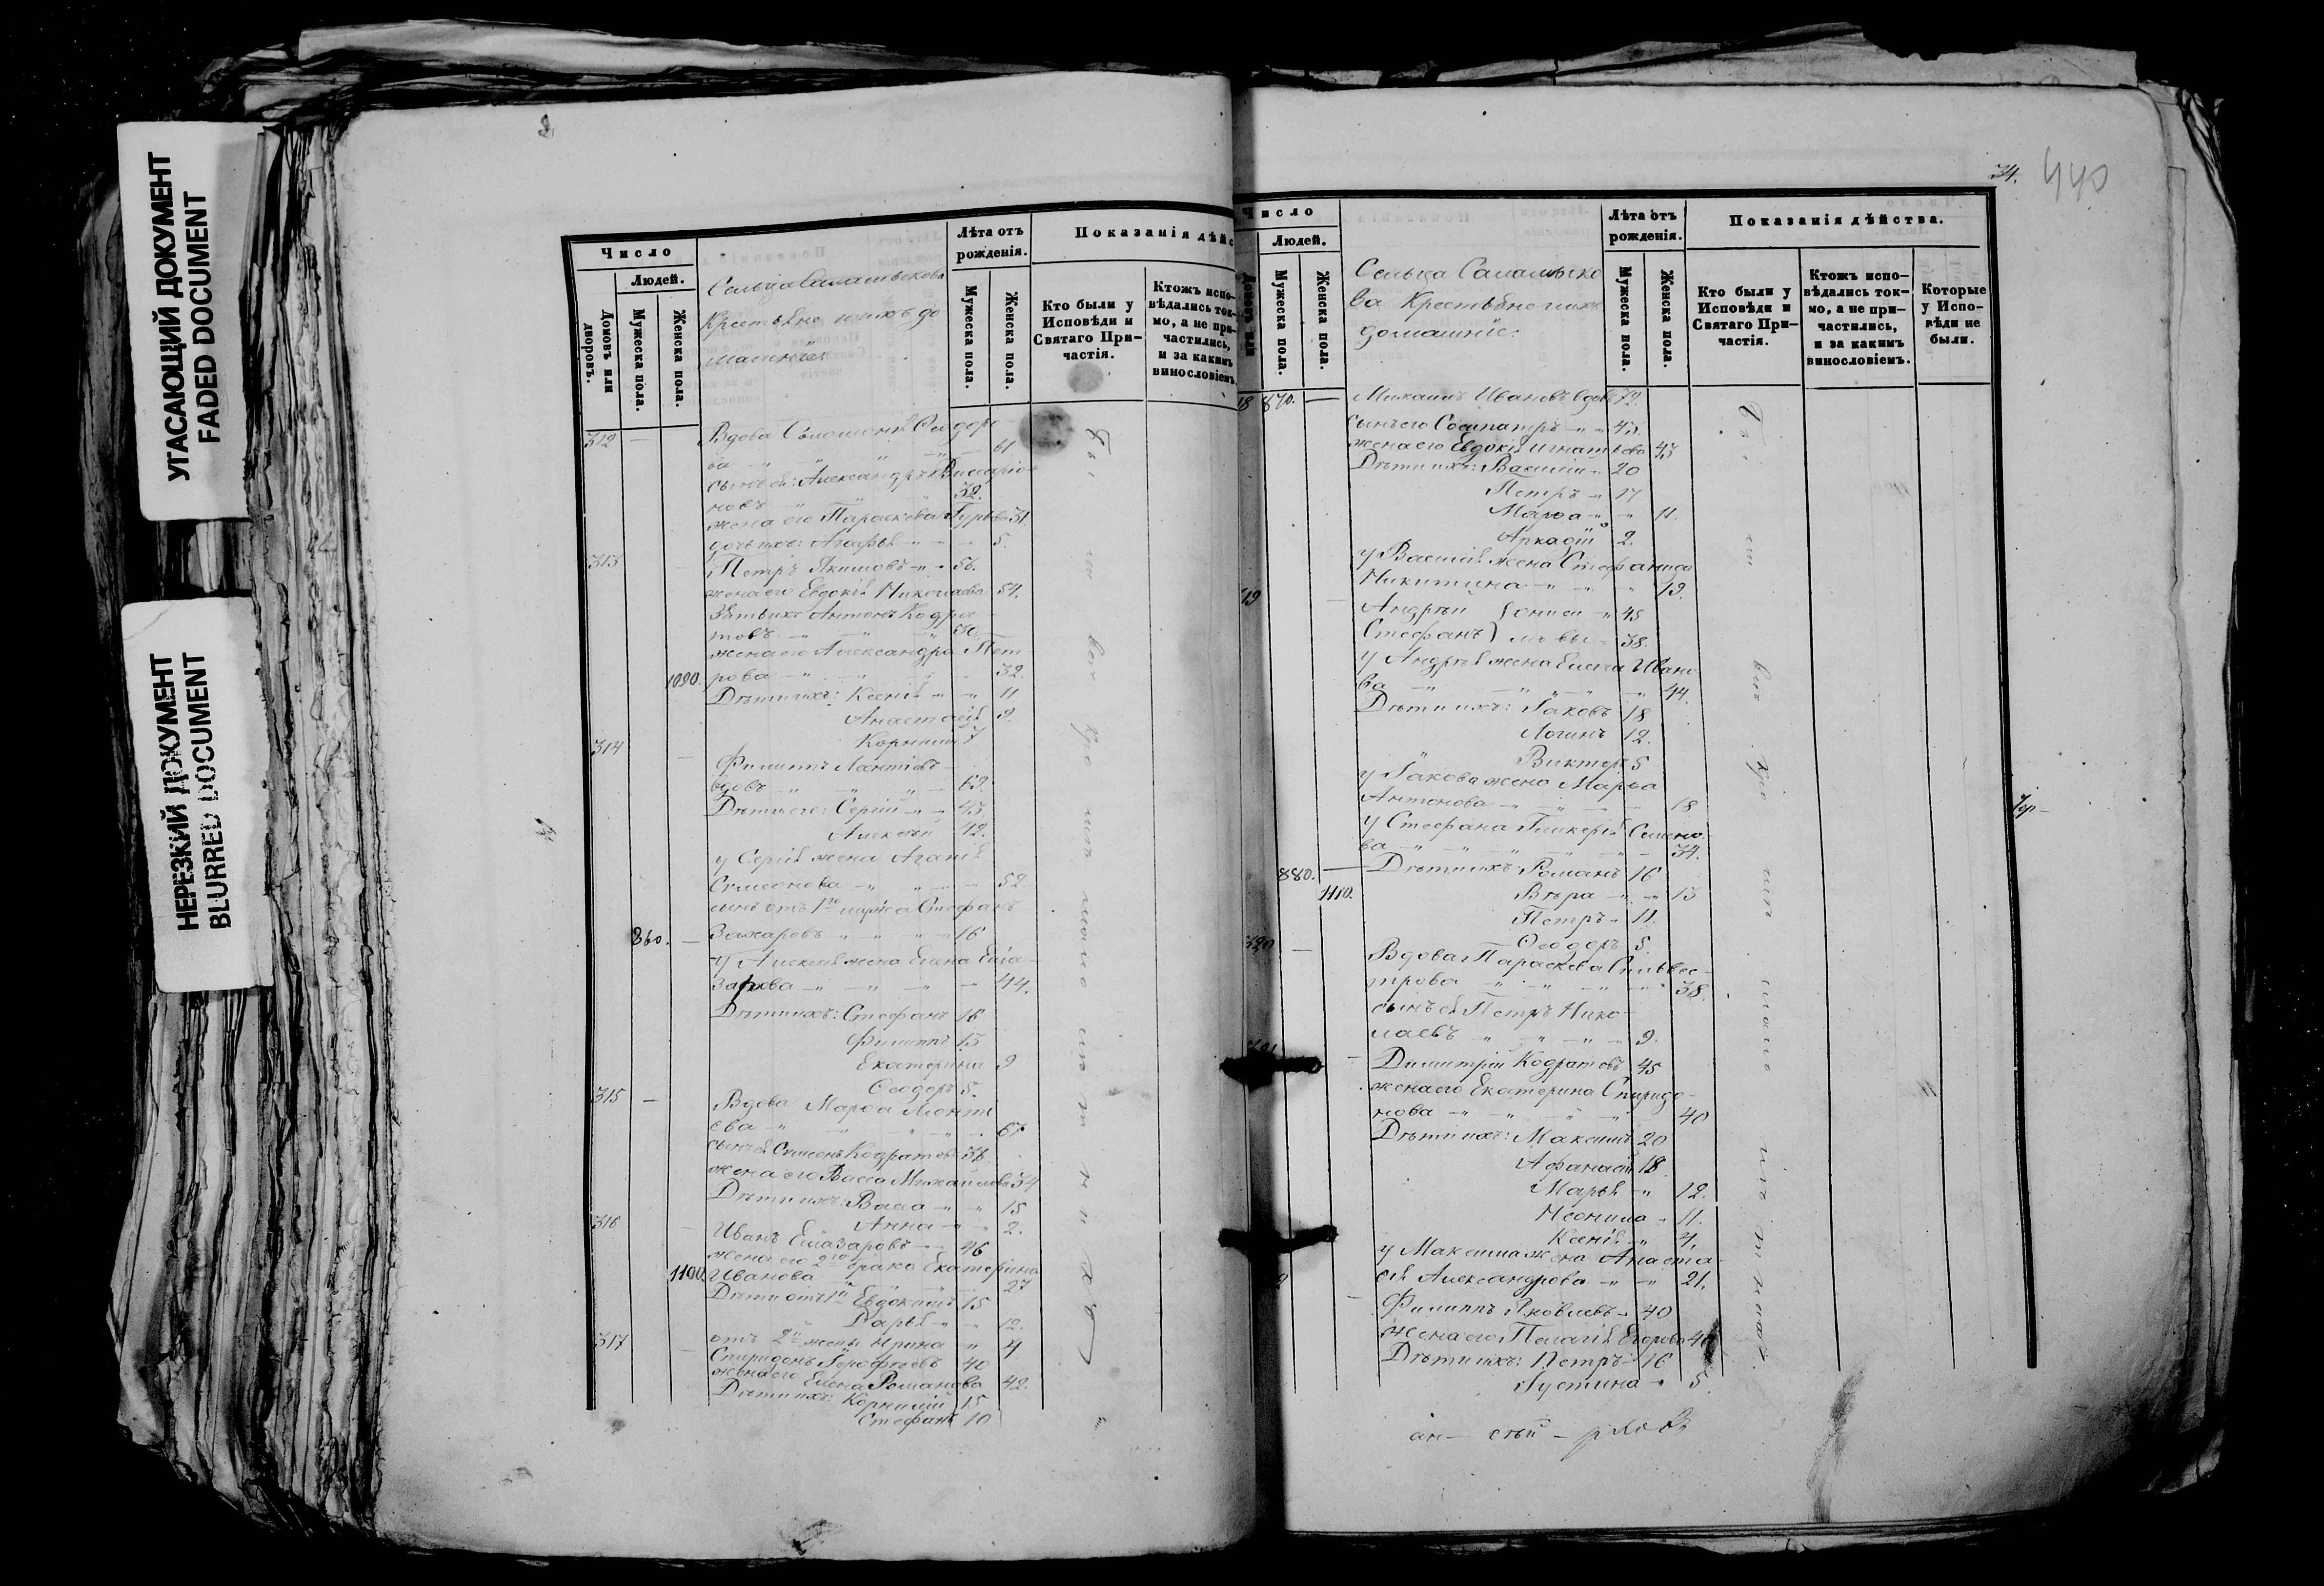 УГАСАЮЩИЙ ДОКУМЕНТ
FADED DOCUMENT
НЕРЕЗКИЙ ДОКУМЕНТ
BLURRED DOCUMENT
Число
Людей.
Домовъ или дворовъ.
Мужеска пола.
Женска пола.
Крестьяне и ихъ до
машніе
Лѣта отъ рожденія.
Мужеска пола.
Женска пола.
Показанія дѣйс
Кто были у Исповѣди и Святаго При-частія.
Ктожъ испо-вѣдались ток-мо, а не при-частились, и за какимъ винословіемъ.
312 Вдова Ѳедоро
ва 61
сынъ ея: Александръ Виссаріо
новъ 32.
жена его Параскева Гурьева 31.
дочь ихъ: Агафья 5.
313 Петръ Якимовъ 56.
жена его Евдокія Николаева 54.
Зять ихъ Антонъ Кодра
товъ
жена его Александра Пет
1090. рова 32.
Дѣти ихъ: Ксенія 11
Анастасія 9.
Корнилій 7
314 Филиппъ Леонтіевъ
вдовъ
Дѣти его: Сергій 43
Алексѣй 42.
у Сергія жена Агапія
Симеонова 52.
сынъ отъ 1го мужа Стефанъ
860. Захаровъ 16
у Алексѣя жена Елена Елеа
зарова 44.
Дѣти ихъ: Стефанъ 16
Филиппъ 13
Екатерина 9
Ѳеодоръ 5.
315 Вдова Марѳа Леонті
ева 67
сынъ ея Симеонъ Кодратовъ 38.
жена его Васса Михайлова 34
Дѣти ихъ: Васса 15
Анна 2.
316 Иванъ Елеазаровъ 46
жена его 2го брака Екатерина
1100. Иванова 27
Дѣти отъ 1й Евдокимъ 15
Дарья 12.
отъ 2й жены Ирина 4
317 Спиридонъ Іероѳеевъ 40
жена его Елена Романова 42.
Дѣти ихъ: Корнилій 15
Стефанъ 10
34.
440
Число
Людей.
Мужеска пола.
Женска пола.
ва Крестьяне и ихъ
домашніе:
Лѣта отъ рожденія.
Мужеска пола.
Женска пола.
Показанія дѣйства.
Кто были у Исповѣди и Святаго При-частія.
Ктожъ испо-вѣдались ток-мо, а не при-частились, и за какимъ винословіемъ.
Которые у Испо-вѣди не были.
18 870. Михаилъ Ивановъ вдовъ 72.
сынъ его Сосипатръ 43.
жена его Евдокія Игнатьева 43
Дѣти ихъ: Василій 20
Петръ 17
Марѳа 11.
Аркадій 2.
у Василія жена Стефанида
Никитина 19.
19 Андрей 45
Стефанъ 38.
у Андрея жена Елена Ивано
ва 44.
Дѣти ихъ: Іаковъ 18
Логинъ 12.
Викторъ 5
у Іакова жена Марѳа
Антонова 18
у Стефана Гликерія Семено
ва 34.
880. Дѣти ихъ: Романъ 16
1110. Вѣра 13
Петръ 11.
Ѳеодоръ 5.
320 Вдова Параскева Сильвес
трова 38.
сынъ ея Петръ Нико
лаевъ 9.
Димитрій Кодратовъ 45
жена его Екатерина Спиридо
нова 40
Дѣти ихъ: Максимъ 20
Афанасій 18.
Марья 12.
Неонила 11.
Ксенія 4.
у Максима жена Анаста
сія Александрова 21.
Филиппъ Яковлевъ 40
жена его Пелагія Егорова
Дѣти ихъ: Петръ 16
Іустина 5.